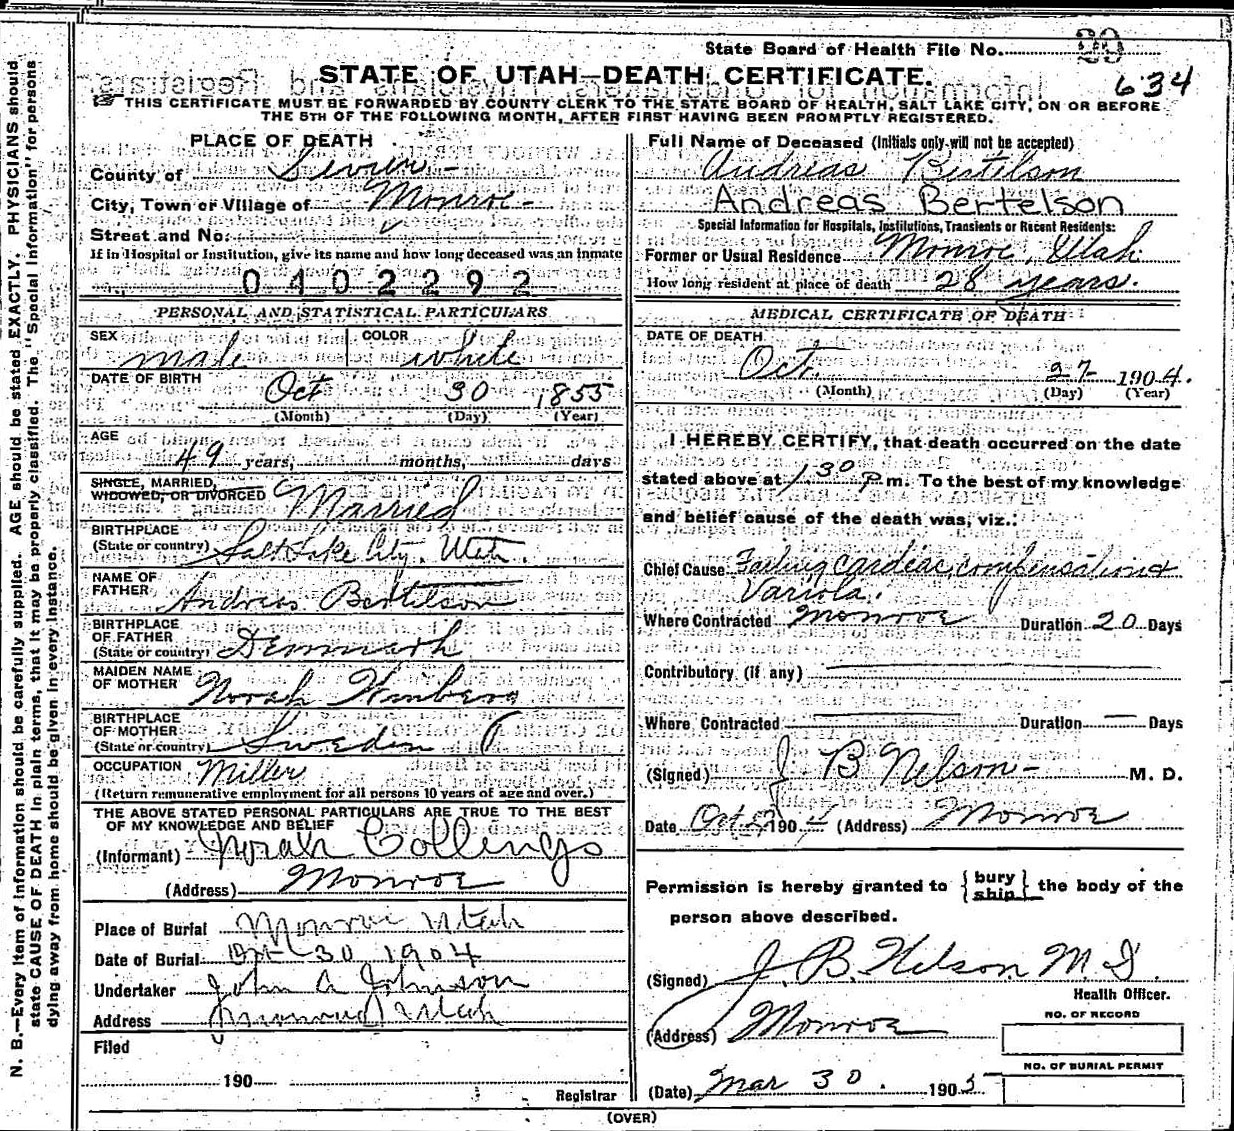 State Board of Health File No. 29
STATE OF UTAH—DEATH CERTIFICATE.
634
THIS CERTIFICATE MUST BE FORWARDED BY COUNTY CLERK TO THE STATE BOARD OF HEALTH, SALT LAKE CITY, ON OR BEFORE
THE 5TH OF THE FOLLOWING MONTH, AFTER FIRST HAVING BEEN PROMPTLY REGISTERED.
N. B.—Every item of information should be carefully supplied. AGE should be stated EXACTLY. PHYSICIANS should
state CAUSE OF DEATH in plain terms, that it may be properly classified. The "Special Information" for persons
dying away from home should be given in every instance.
PLACE OF DEATH
County of Sevier
City, Town or Village of Monroe
Street and No.
If in Hospital or Institution, give its name and how long deceased was an inmate
0402292
PERSONAL AND STATISTICAL PARTICULARS
SEX male COLOR white
DATE OF BIRTH Oct 30 1855
(Month) (Day) (Year)
AGE
49 years, months, days
SINGLE, MARRIED,
WIDOWED, OR DIVORCED Married
BIRTHPLACE
(State or country) Salt Lake City, Utah
NAME OF
FATHER Andreas Bertelson
BIRTHPLACE
OF FATHER
(State or country) Denmark
MAIDEN NAME
OF MOTHER Norah
BIRTHPLACE
OF MOTHER
(State or country) Sweden
OCCUPATION Miller
(Return remunerative employment for all persons 10 years of age and over.)
THE ABOVE STATED PERSONAL PARTICULARS ARE TRUE TO THE BEST
OF MY KNOWLEDGE AND BELIEF
(Informant) Norah Collings
(Address) Monroe
Place of Burial Monroe Utah
Date of Burial Oct 30 1904
Undertaker John A Johnson
Address Monroe Utah
Filed
190
Registrar
Full Name of Deceased (Initials only will not be accepted)
Andreas Bertelson
Andreas Bertelson
Special Information for Hospitals, Institutions, Transients or Recent Residents:
Former or Usual Residence Monroe, Utah
How long resident at place of death 28 years.
MEDICAL CERTIFICATE OF DEATH
DATE OF DEATH
Oct. 27 1904.
(Month) (Day) (Year)
I HEREBY CERTIFY, that death occurred on the date
stated above at 1.30 P.m. To the best of my knowledge
and belief cause of the death was, viz.:
Chief Cause Failing cardiac compensation &
Variola.
Where Contracted Monroe Duration 20 Days
Contributory (if any)
Where Contracted — Duration — Days
(Signed) J B Nelson M. D.
Date Oct 190 (Address) Monroe
Permission is hereby granted to { bury ship } the body of the
person above described.
(Signed) J. B. Nelson M D.
Health Officer.
(Address) Monroe
NO. OF RECORD
NO. OF BURIAL PERMIT
(Date) Mar 30. 1905
(OVER)